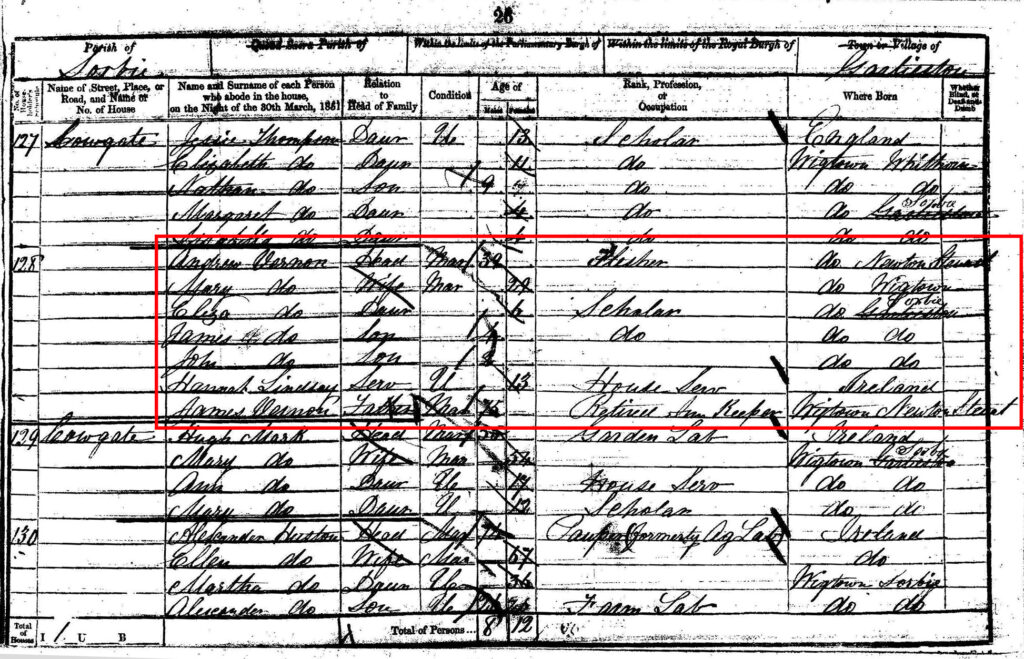 26
Parish of Quoad Sacra Parish of Within the limits of the Parliamentary Burgh of Within the limits of the Royal Burgh of Town or Village of
Sorbie Garlieston
No. of House- Name of Street, Place, or Road, and Name or No. of House Name and Surname of each Person who abode in the house, on the Night of the 30th March, 1851 Relation to Head of Family Condition Age of Males Females Rank, Profession, or Occupation Where Born Whether Blind, or Deaf-and-Dumb
127 Cowgate Thompson Daur U 13 Scholar England
Elizabeth do Daur 11 do Wigtown Whithorn
Nathan do Son 9 do do do
Margaret do Daur 4 do do Sorbie Garlieston
do Daur do do do
128 Andrew Vernon Head Mar 39 Flesher do Newton Stewart
Mary do Wife Mar do Wigtown
Eliza do Daur 6 Scholar do Sorbie Garlieston
James do Son 4 do do do
John do Son 2 do do
Hannah Lindsay Serv U 13 House Serv Ireland
James Vernon Father Mar 75 Retired Inn Keeper Wigtown Newton Stewart
129 Cowgate Hugh Mark Head Mar 50 Garden Lab Ireland
Mary do Wife Mar 54 Wigtown Sorbie Garlieston
Ann do Daur U 17 House Serv do do
Mary do Daur U 12 Scholar do do
130 Alexander Huston Head Mar 74 Pauper formerly Ag Lab Ireland
Ellen do Wife Mar 67 do
Martha do Daur U 36 Wigtown Sorbie
Alexander do Son U Farm Lab do do
Total of Houses I 1 U B Total of Persons... 8 12